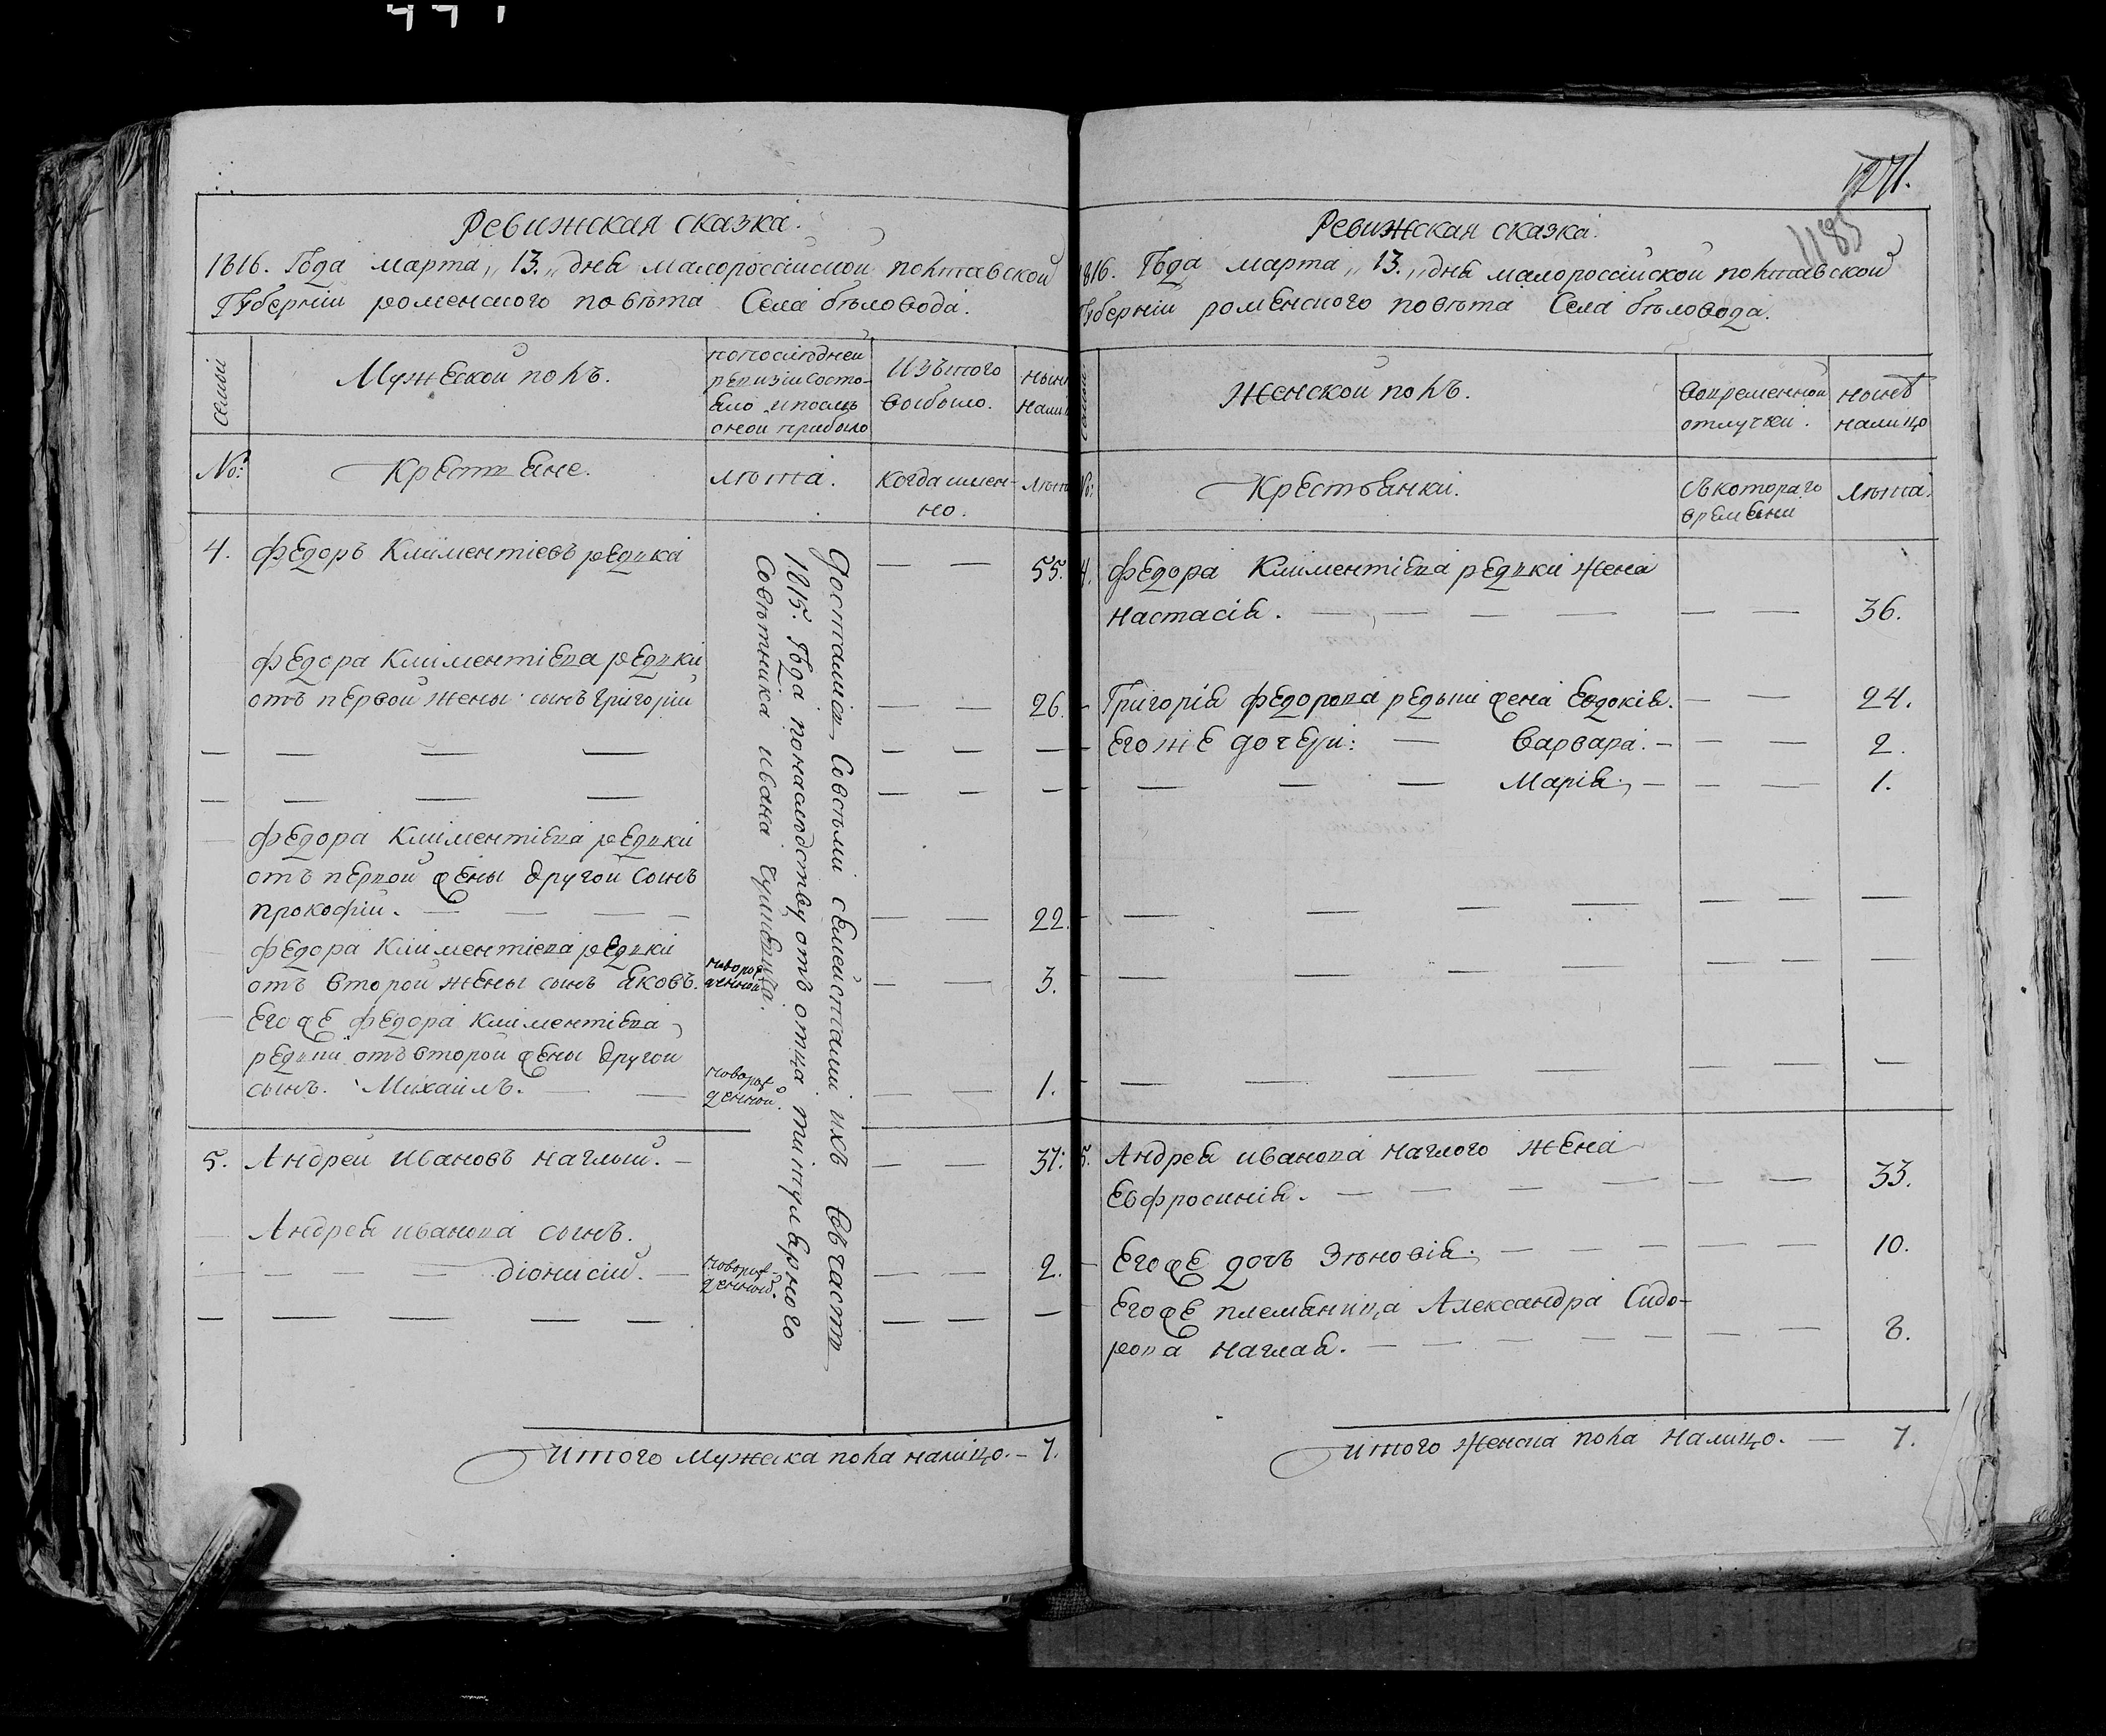 Ревижская сказка.
1816. Года марта „13.„ дня малороссійской полтавской
Губерніи роменского повѣта Села бѣловода.
семьи
Мужеской полъ.
попослѣдней
ревизіи состо-
яло ипослѣ
оной прибыло
Изътого
выбыло.
нынѣ
нали
№:
Крестьяне.
лѣта.
когда имен-
но.
лѣта
4. федоръ Климентіевъ редька
55.
федора Климентіева редьки
отъ первой жены сынъ григорій
— — 26.
— — — — — — —
— — — — — — —
федора Климентіева редьки
отъ первой жены другой сынъ
прокофій. — — — — — — 22.
федора Климентіева редьки
отъ второй жены сынъ яковъ.
новорож-
денной
— — 3.
Егоже федора Климентіева
редьки отъ второй жены другой
сынъ. Михаилъ. — —
новорож-
денной.
— — 1.
Достались Совсѣми семействами ихъ въчасть
1815. Года понаслѣдству отъ отца титулярного
Совѣтника ивана
5. Андрей Ивановъ наглый. — — — 37.
Андрея иванова сынъ.
— — — — діонисій. —
новорож-
денный.
— — 2.
— — — — — — — —
Итого Мужеска пола налицо. — 7.
1271.
1185
Ревижская сказка.
1816. Года марта „13.„ дня малороссійской полтавской
Губерніи роменского повѣта Села бѣловода.
семьи
Женской полъ.
вовременной
отлучки.
нынѣ
налицо
№:
Крестьянки.
съкотораго
времени
лѣта.
4. федора Климентіева редьки жена
настасія. — — — — — — 36.
— Григорія федорова редьки жена Евдокія. — — 24.
— Егоже дочери: — варвара. — — — 2.
— — — — Марія, — — — 1.
— — — — — — — —
— — — — — — — —
— — — — — — — —
5. Андрея иванова наглого жена
Евфросинія. — — — — — — 33.
— Егоже дочь Зѣновія. — — — — — 10.
Егоже племянница Александра Сидо-
рова наглая. — — — — — — 8.
Итого женска пола налицо. — 7.